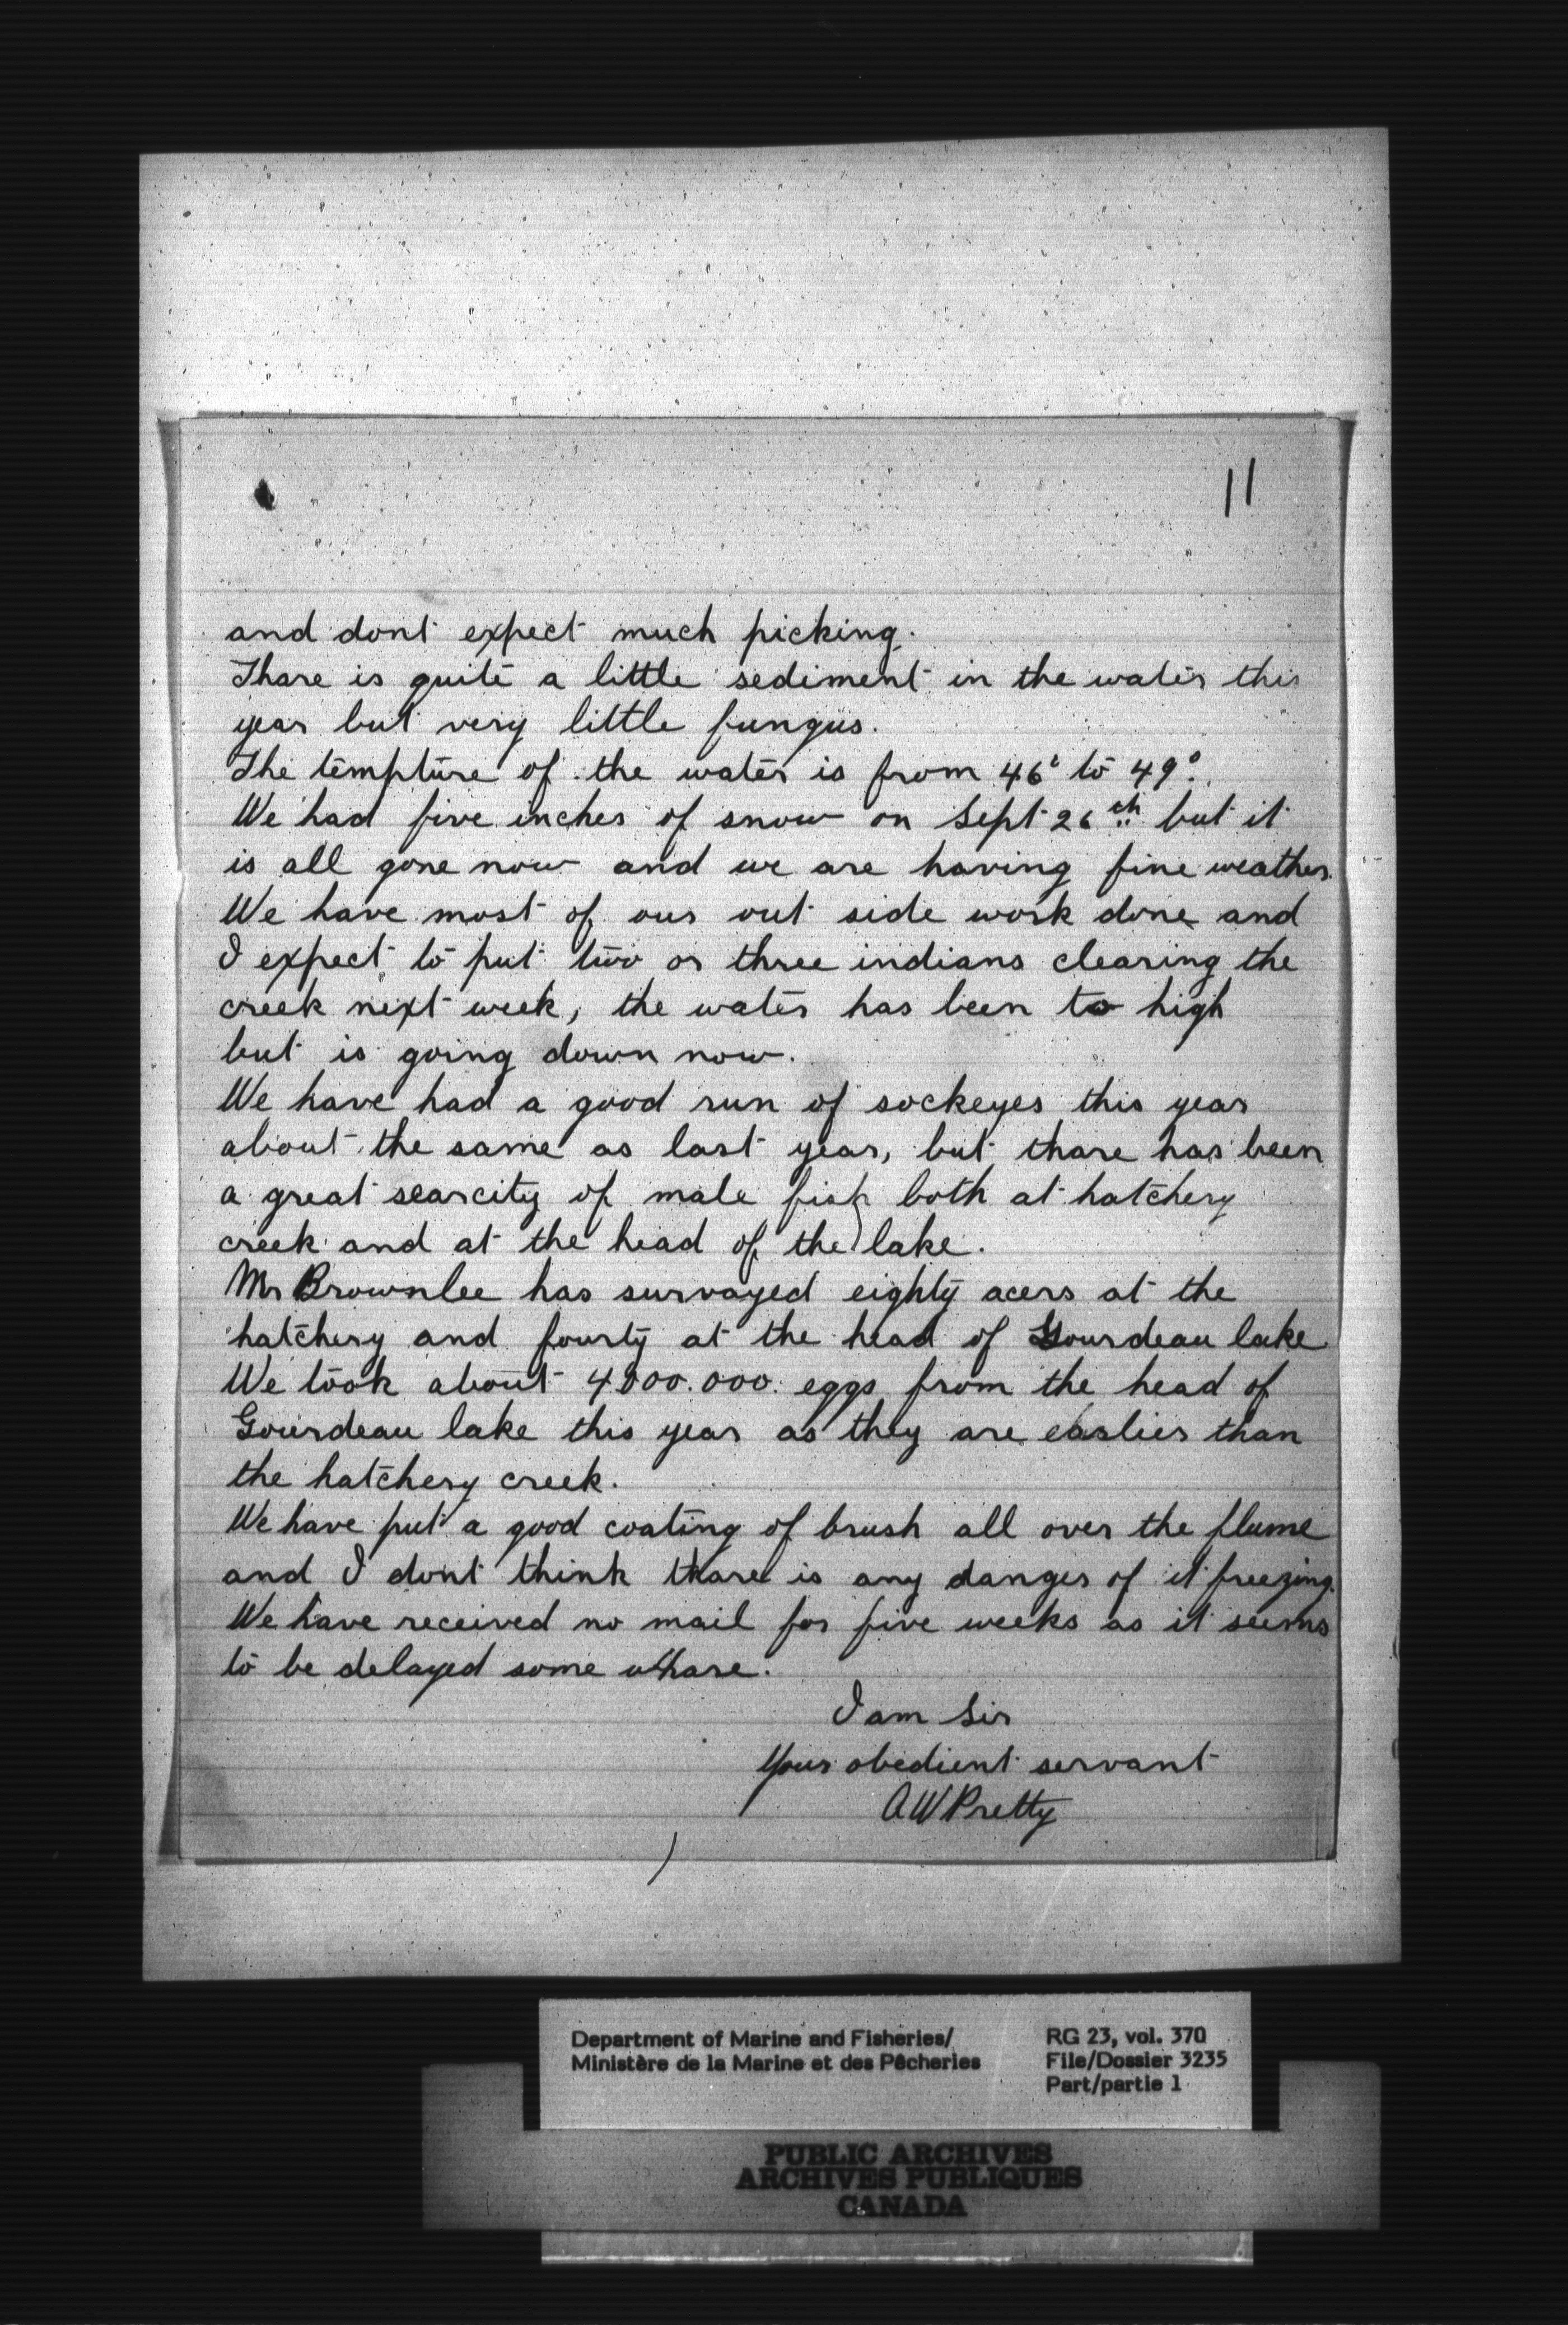 11
and dont expect much picking.
Thare is quite a little sediment in the water this
year but very little fungus.
The tempture of the water is from 46° to 49°.
We had five inches of snow on Sept 26th but it
is all gone now and we are having fine weather.
We have most of our out side work done and
I expect to put two or three indians clearing the
creek next week, the water has been to high
but is going down now.
We have had a good run of sockeyes this year
about the same as last year, but thare has been
a great scarcity of male fish both at hatchery
creek and at the head of the lake.
Mr Brownlee has survayed eighty acers at the
hatchery and fourty at the head of Gourdeau lake
We took about 4000.000. eggs from the head of
Gourdeau lake this year as they are earlier than
the hatchery creek.
We have put a good coating of brush all over the flume
and I dont think thare is any danger of it freezing.
We have received no mail for five weeks as it seems
to be delayed some whare.
I am Sir
Your obedient servant
A W Pretty
Department of Marine and Fisheries/ RG 23, vol. 370
Ministère de la Marine et des Pêcheries File/Dossier 3235
Part/partie 1
PUBLIC ARCHIVES
ARCHIVES PUBLIQUES
CANADA